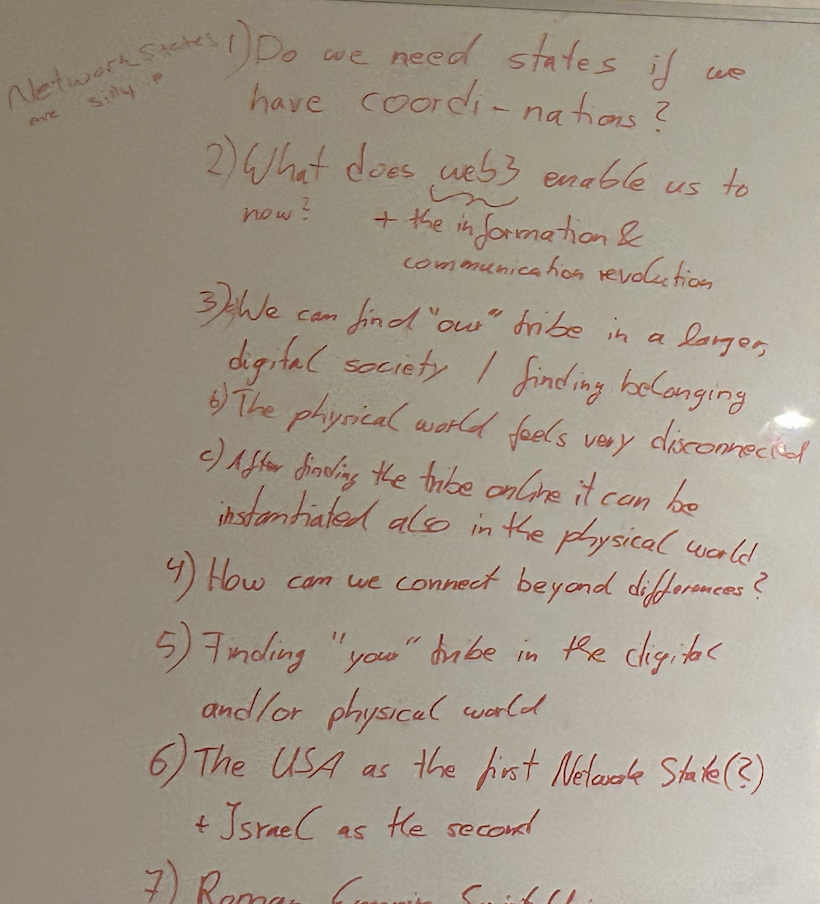 Network States
are silly?
1) Do we need states if we
have coordi-nations?
2) What does web3 enable us to
now? + the information &
communication revolution
3) We can find "our" tribe in a larger,
digital society / finding belonging
b) The physical world feels very disconnected
c) After finding the tribe online it can be
instantiated also in the physical world
4) How can we connect beyond differences?
5) Finding "your" tribe in the digital
and/or physical world
6) The USA as the first Network State(?)
+ Israel as the second
7) Roman